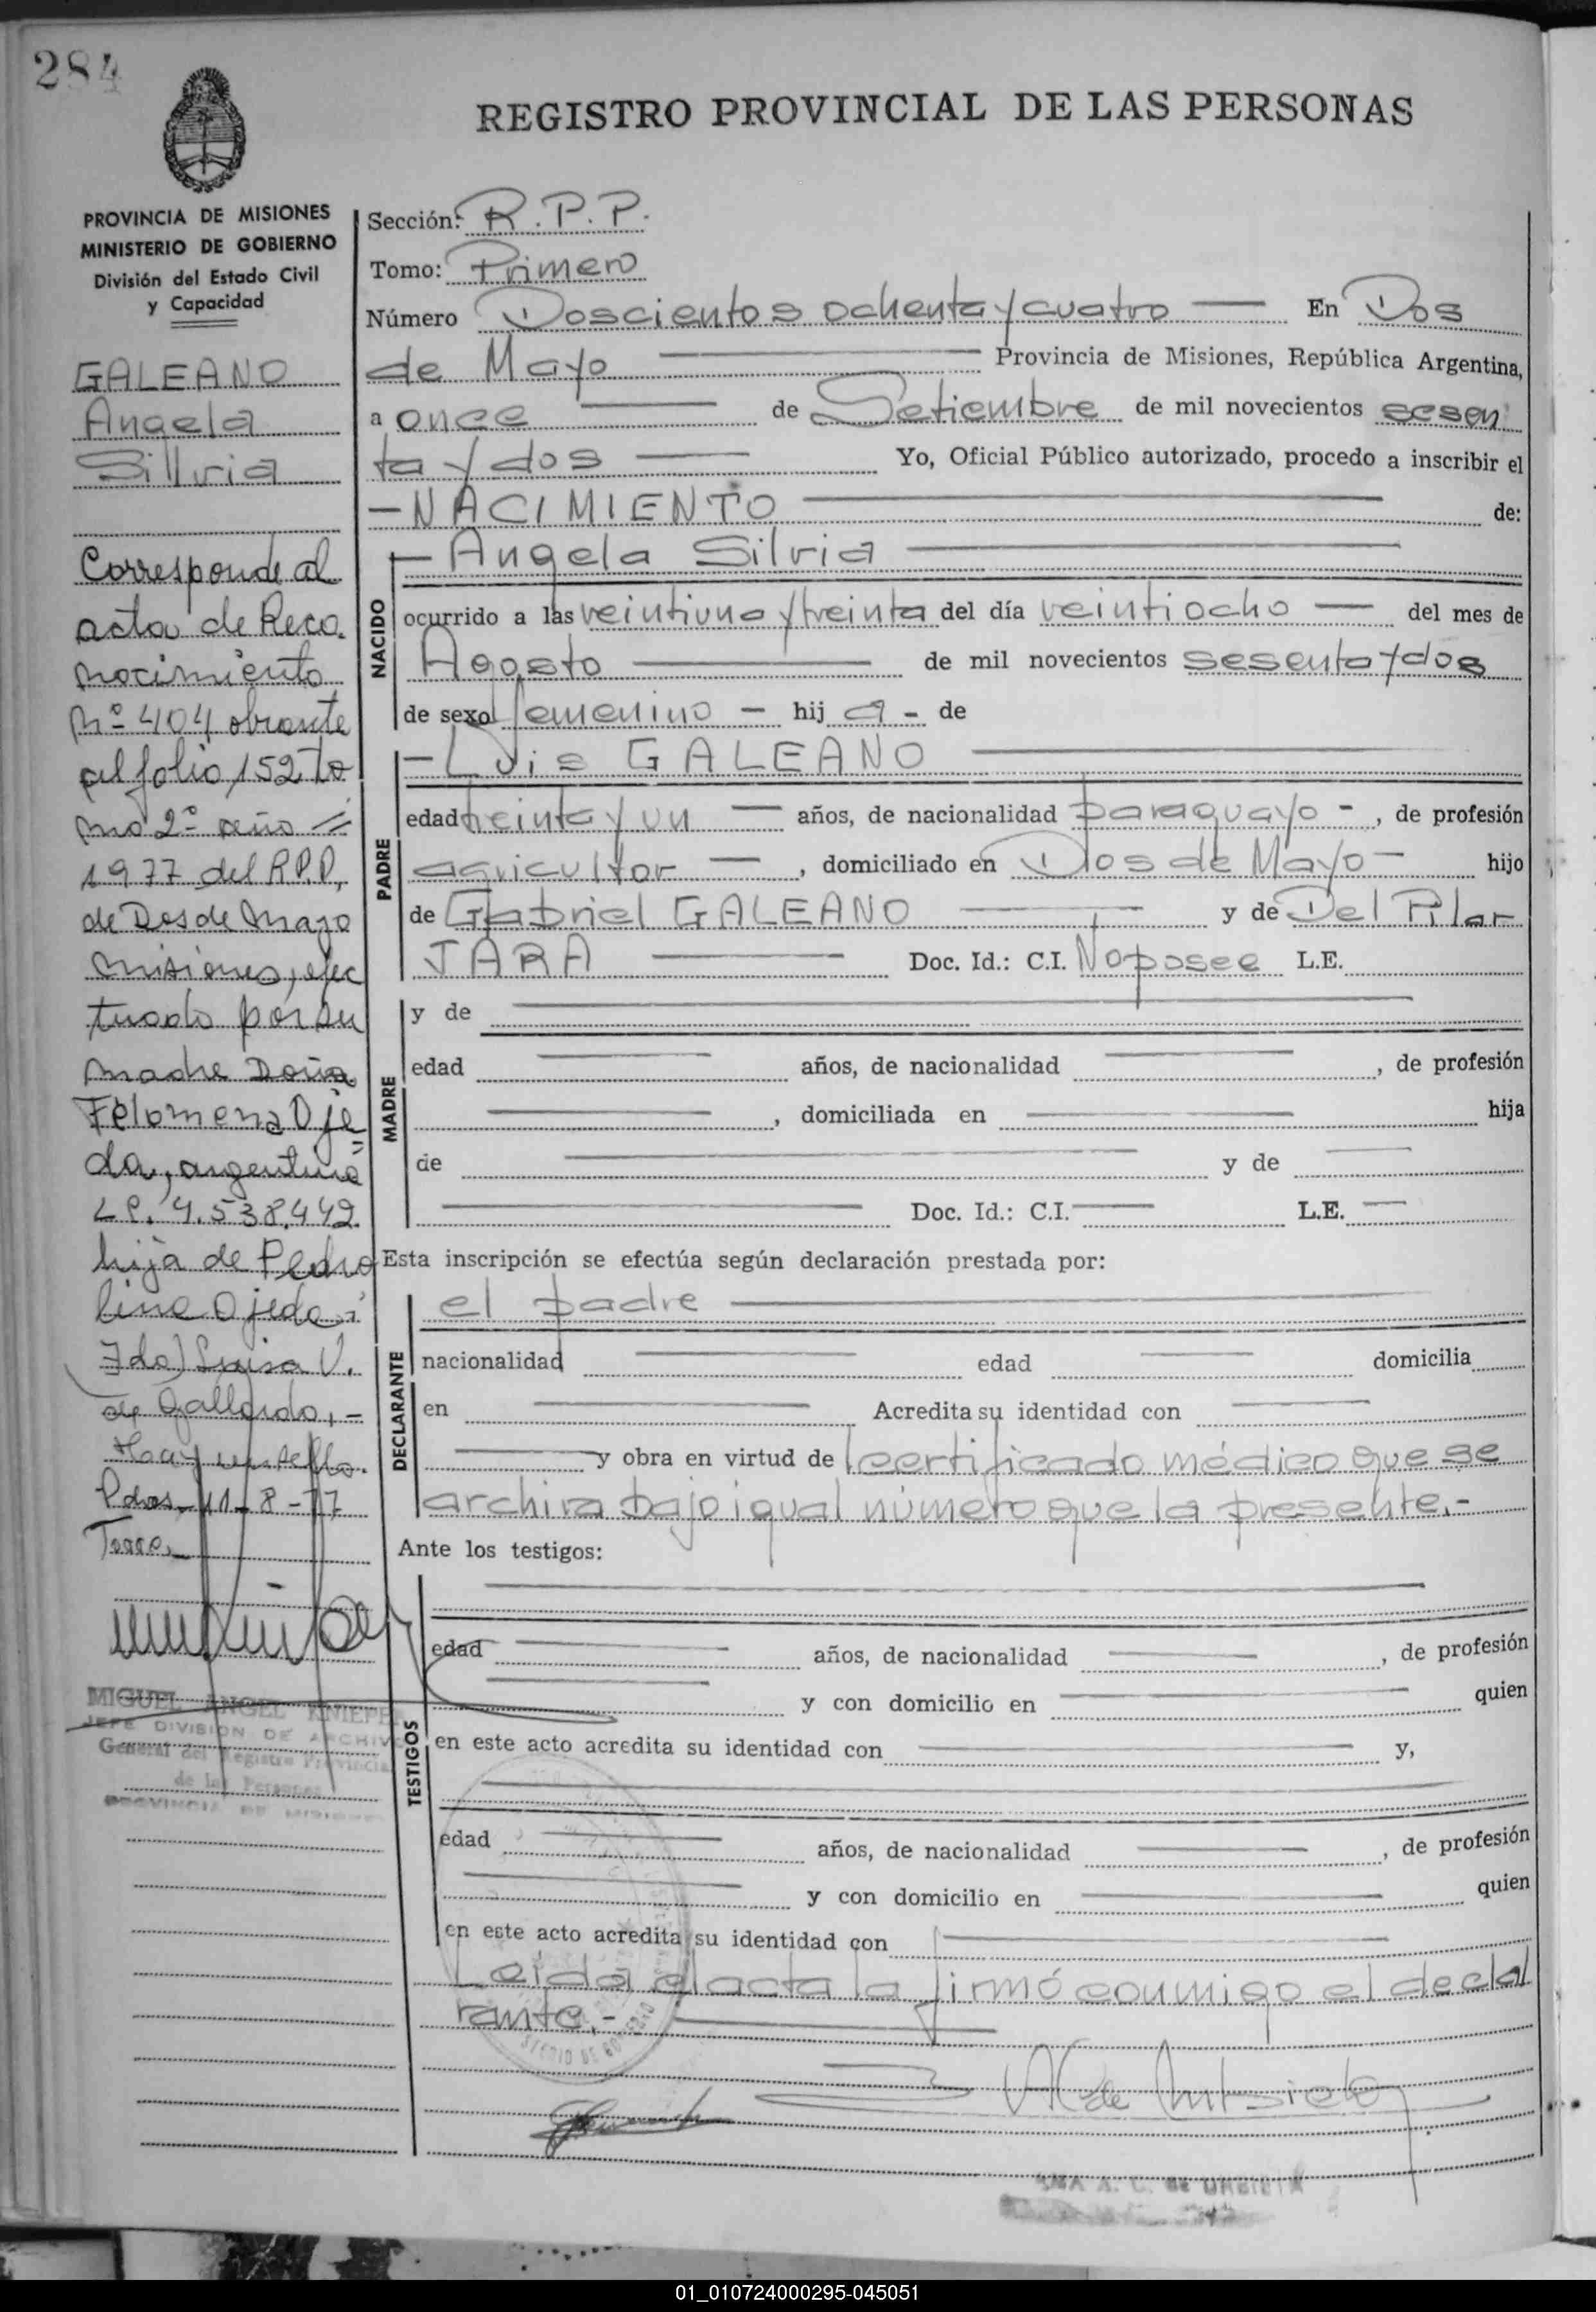 284
REGISTRO PROVINCIAL DE LAS PERSONAS
PROVINCIA DE MISIONES
MINISTERIO DE GOBIERNO
División del Estado Civil
y Capacidad
GALEANO
Angela
Sillvia
Corresponde al
acta de Reco
nocimiento
Nº 404 obrante
al folio 152 to
mo 2º año =
1977 del R.P.P.
de Dos de Mayo
Misiones, efec
tuado por su
madre Doña
Felomena Oje
da, argentina
L.C. 4.538.442
hija de Pedro
lina Ojeda.-
Fdo) Luisa V.
de Gallardo, -
Hay un sello.
Pdas- 11-8-77
MIGUEL ANGEL KNIEPE
JEFE DIVISION DE ARCHIVO
General del Registro Provincial
de las Personas
PROVINCIA DE MISIONES
Sección: R.P.P.
Tomo: Primero
Número Doscientos ochenta y cuatro — En Dos
de Mayo — Provincia de Misiones, República Argentina,
a once — de Setiembre de mil novecientos sesen
ta y dos — Yo, Oficial Público autorizado, procedo a inscribir el
- NACIMIENTO — de:
- Angela Silvia —
NACIDO
ocurrido a las veintiuna y treinta del día veintiocho — del mes de
Agosto — de mil novecientos sesenta y dos
de sexo femenino - hij a - de
- Luis GALEANO —
PADRE
edad treinta y un — años, de nacionalidad paraguayo -, de profesión
agricultor —, domiciliado en Dos de Mayo - hijo
de Gabriel GALEANO — y de Del Pilar
JARA — Doc. Id.: C.I. No posee L.E.
MADRE
y de —
edad — años, de nacionalidad —, de profesión
—, domiciliada en — hija
de — y de —
— Doc. Id.: C.I. — L.E. —
Esta inscripción se efectúa según declaración prestada por:
el padre —
DECLARANTE
nacionalidad — edad — domicilia
en — Acredita su identidad con —
— y obra en virtud de certificado médico que se
archiva bajo igual número que la presente.-
Ante los testigos:
TESTIGOS
edad — años, de nacionalidad —, de profesión
— y con domicilio en — quien
en este acto acredita su identidad con — y,
edad — años, de nacionalidad —, de profesión
— y con domicilio en — quien
en este acto acredita su identidad con —
Leída el acta la firmó conmigo el decla
rante.- —
A. C. de URBIETA
01_010724000295-045051